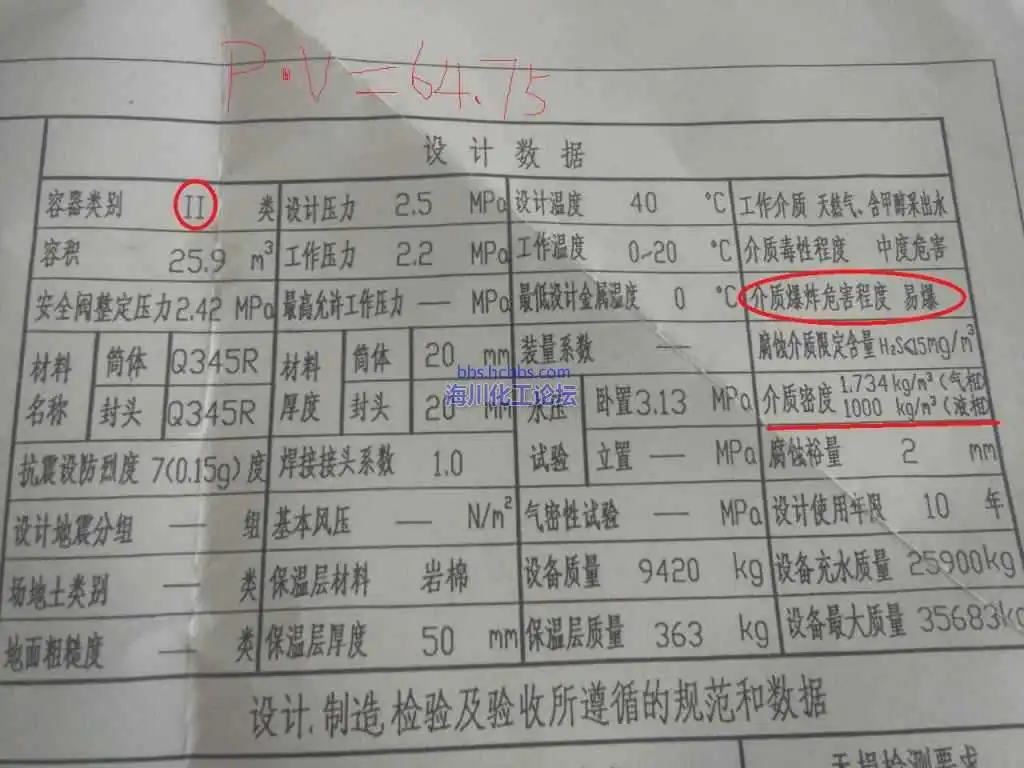 P·V=64.75
设计数据
容器类别 II 类 设计压力 2.5 MPa 设计温度 40 ℃ 工作介质 天然气、含甲醇采出水
容积 25.9 m³ 工作压力 2.2 MPa 工作温度 0~20 ℃ 介质毒性程度 中度危害
安全阀整定压力 2.42 MPa 最高允许工作压力 — MPa 最低设计金属温度 0 ℃ 介质爆炸危害程度 易爆
材料名称 筒体 Q345R 材料厚度 筒体 20 mm 装量系数 — 腐蚀介质限定含量 H₂S≤15mg/m³
封头 Q345R 封头 20 mm 水压试验 卧置 3.13 MPa 介质密度 1.734 kg/m³(气相)
1000 kg/m³(液相)
bbs.hcbbs.com
海川化工论坛
抗震设防烈度 7(0.15g) 度 焊接接头系数 1.0 立置 — MPa 腐蚀裕量 2 mm
设计地震分组 — 组 基本风压 — N/m² 气密性试验 — MPa 设计使用年限 10 年
场地土类别 — 类 保温层材料 岩棉 设备质量 9420 kg 设备充水质量 25900kg
地面粗糙度 — 类 保温层厚度 50 mm 保温层质量 363 kg 设备最大质量 35683kg
设计.制造.检验及验收所遵循的规范和数据
无损检测要求